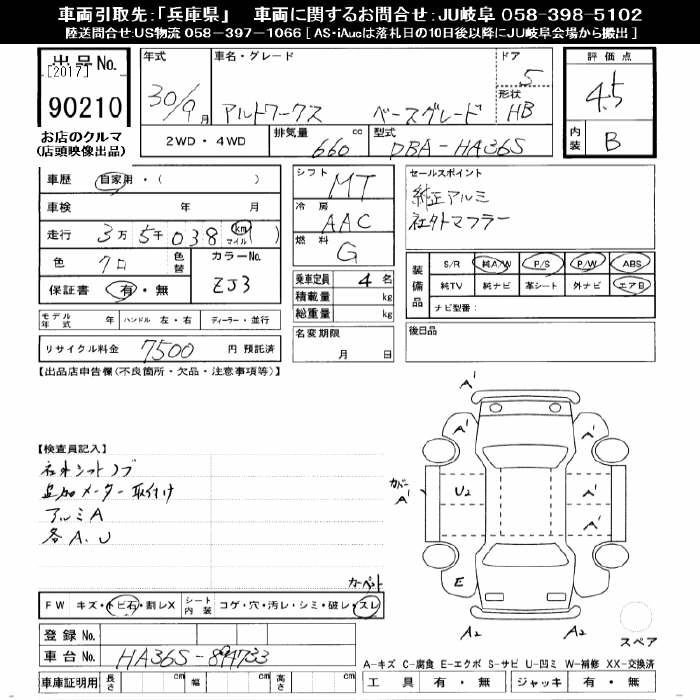 車両引取先:「兵庫県」　車両に関するお問合せ:JU岐阜 058-398-5102
陸送問合せ:US物流 058-397-1066 [ AS・iAucは落札日の10日後以降にJU岐阜会場から搬出 ]
出品 No.
[2017]
90210
お店のクルマ
(店頭映像出品)
年式 車名・グレード ドア 5
30/9月 アルトワークス ベースグレード 形状 HB
2WD・4WD 排気量 660 cc 型式 DBA-HA36S
評価点
4.5
内装 B
車歴 自家用・( )
車検 年 月
走行 3万 5千 038 km マイル )
色 クロ 色替 カラーNo. ZJ3
保証書 有・無
モデル年式 年 ハンドル 左・右 ディーラー・並行
リサイクル料金 7500 円 預託済
シフト MT
冷房 AAC
燃料 G
乗車定員 4 名
積載量 kg
総重量 kg
名変期限
月 日
セールスポイント
純正アルミ
社外マフラー
装備品 S/R 純A/W P/S P/W ABS
純TV 純ナビ 革シート 外ナビ エアB
ナビ型番:
後日品
【出品店申告欄(不良箇所・欠品・注意事項等)】
【検査員記入】
社外シフトノブ
追加メーター取付け
アルミA
各A、U
カーペット
FW キズ・トビ石・割レX シート内装 コゲ・穴・汚レ・シミ・破レ・スレ
登録 No.
車台 No. HA36S-894733
車庫証明用 長さ cm 幅 cm 高さ cm
A'
A' A'
カバーA' U2 A'
A'
E
A2 A2
スペア
A-キズ C-腐食 E-エクボ S-サビ U-凹ミ W-補修 XX-交換済
工具 有・無 ジャッキ 有・無